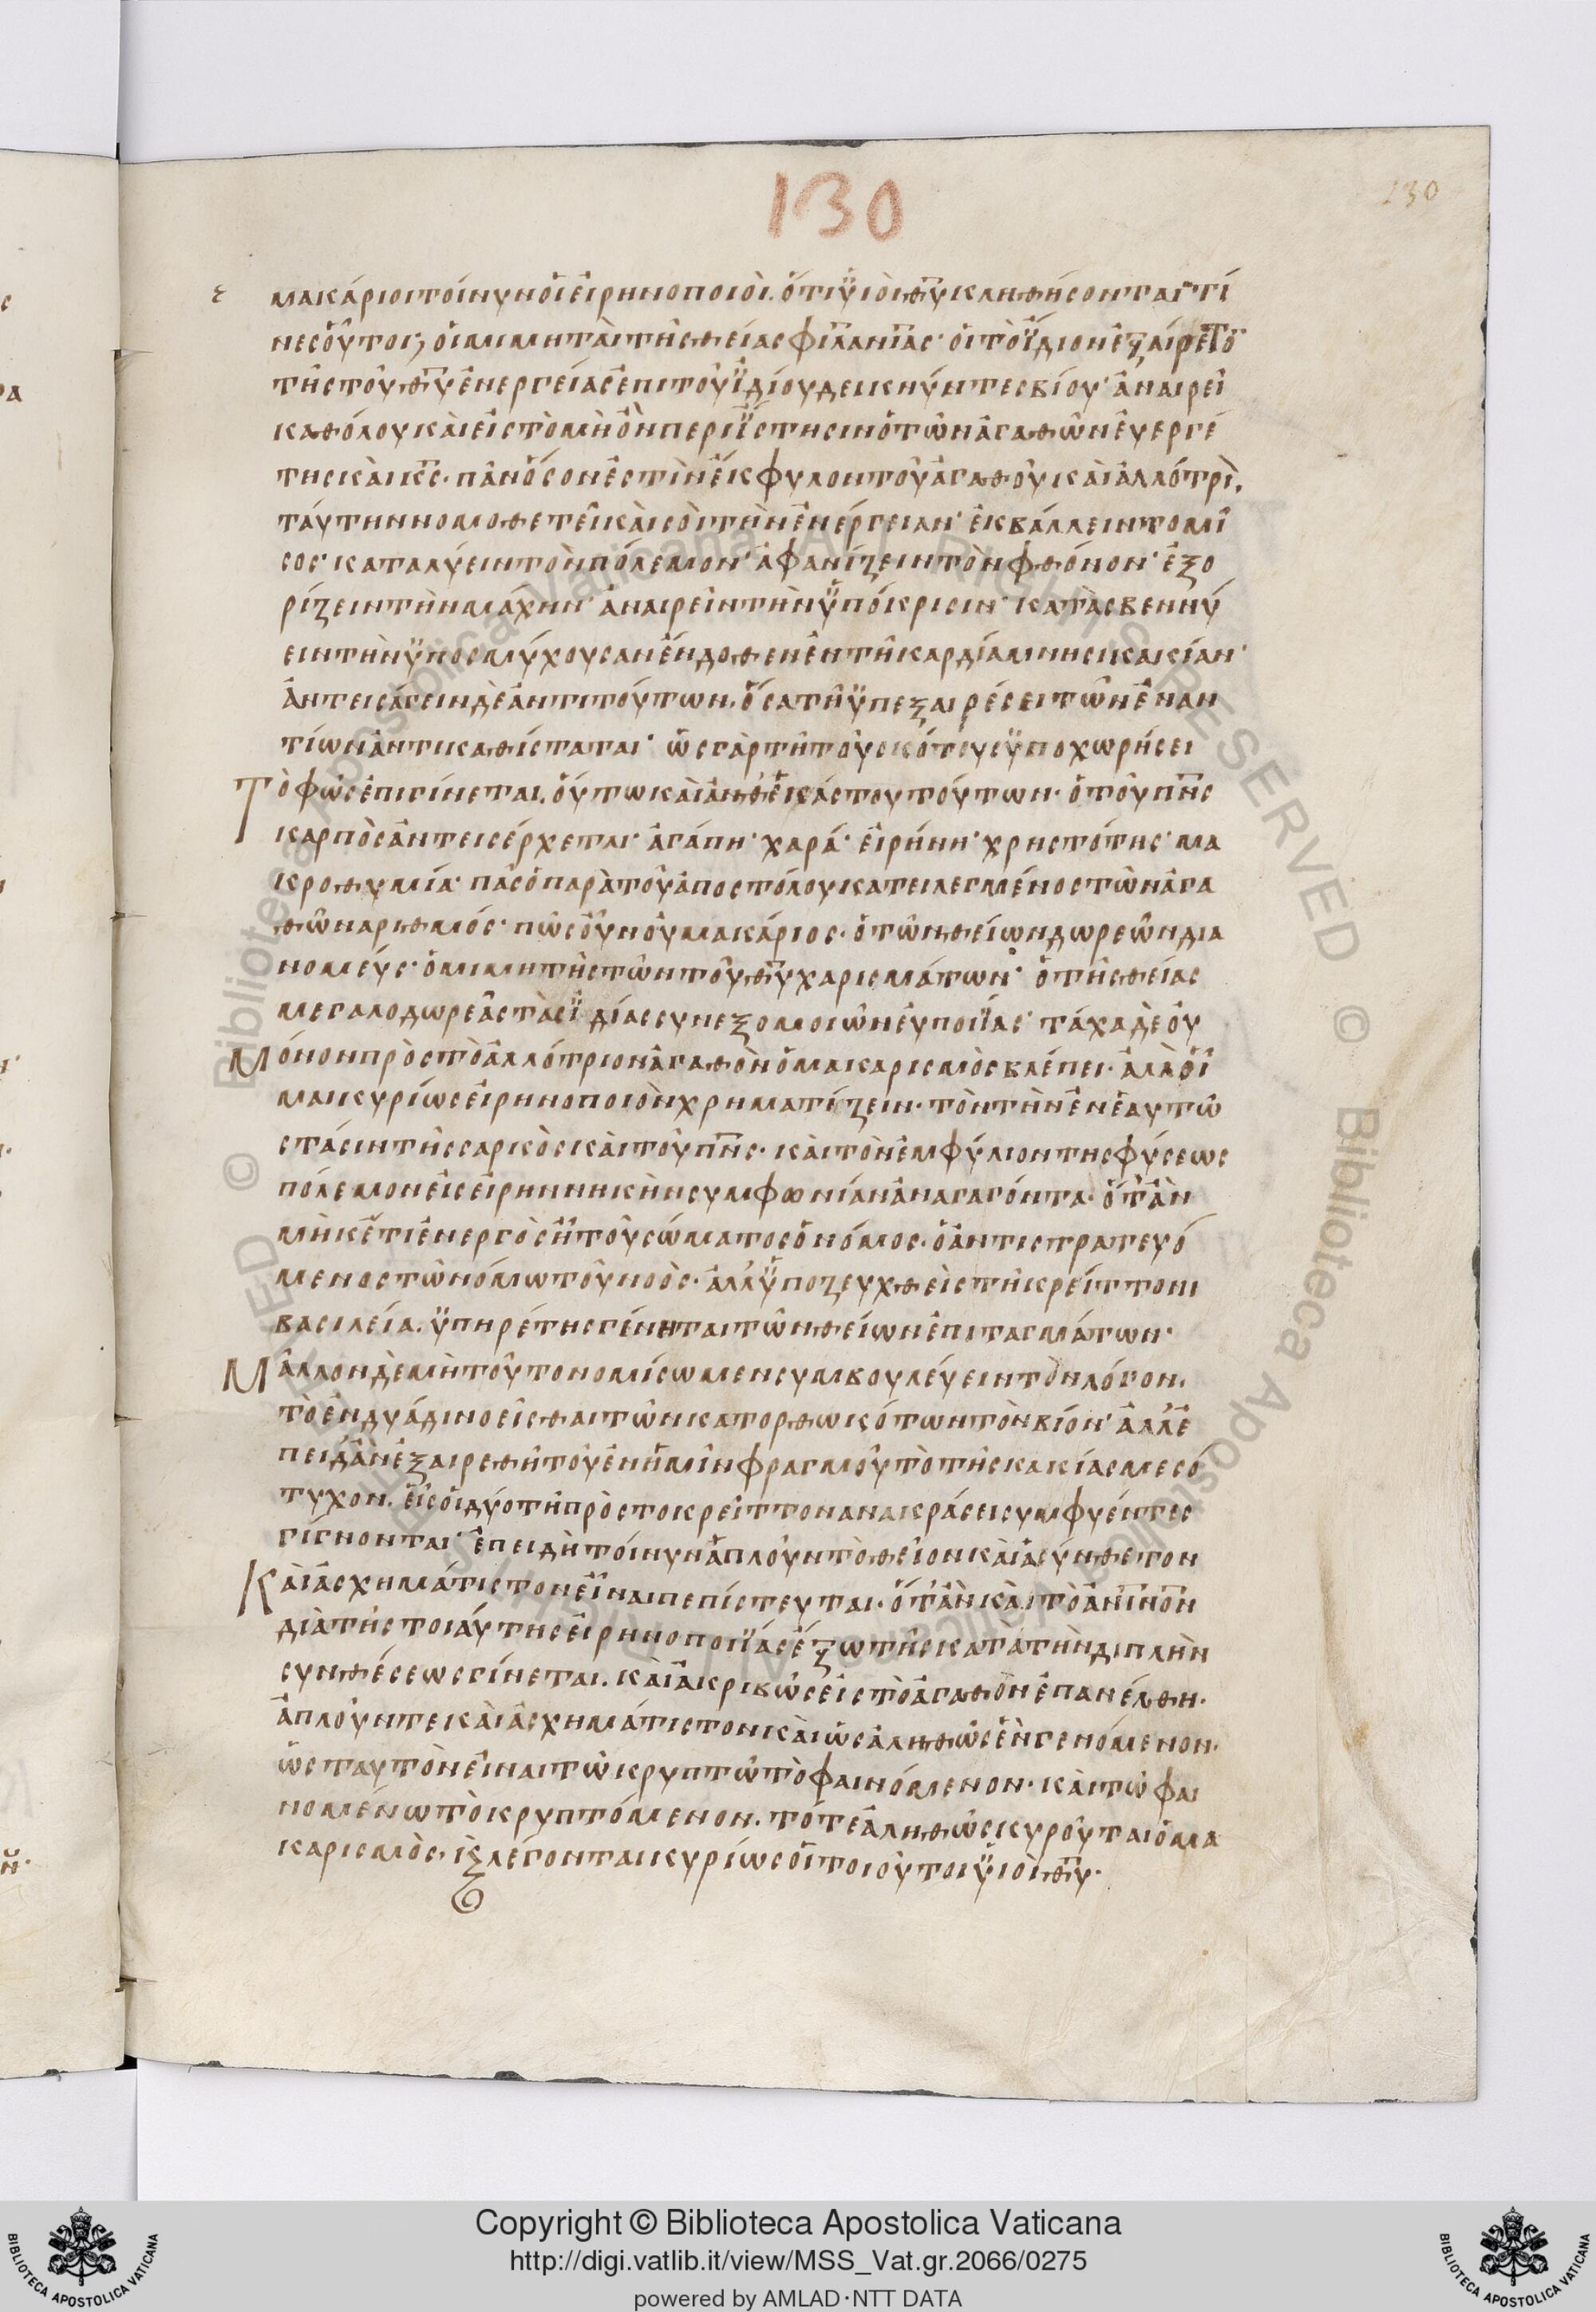 130
130
ε μακάριοι τοίνυν οἱ εἰρηνοποιοὶ. ὅτι υἱοὶ θυ κληθήσονται· τί
νες οὗτοι; οἱ μιμηταὶ τῆς θείας φιλανιας· οἱ τὸ ἴδιον ἐξαίρετο
τῆς τοῦ θυ ἐνεργείας ἐπι τοῦ ἰδίου δεικνύντες βίου· ἀναιρεῖ
καθόλου καὶ εἰς τὸ μὴ ὂν περιΐστησιν ὁ τῶν ἀγαθῶν ἐυεργέ
της καὶ κς. πᾶν ὅσον ἐστὶν ἔκφυλον τοῦ ἀγαθοῦ καὶ ἀλλότρι.
ταύτην νομοθετεῖ καὶ σοὶ τὴν ἐνέργειαν· ἐκβάλλειν το μῖ
σος· καταλύειν τὸν πόλεμον· ἀφανίζειν τὸν φθόνον· ἐξο
ρίζειν τὴν μάχην· ἀναιρεῖν τὴν ὑπόκρισιν· κατασβεννύ
ειν τὴν ὑποσμύχουσαν ἔνδοθεν ἐν τῆ καρδία μνησικακίαν·
ἀντεισάγειν δὲ ἀντι τούτων. ὅσα τῆ ὑπεξαιρέσει τῶν ἐναν
τίων ἀντικαθίσταται· ὡς γὰρ τῆ τοῦ σκότους ὑποχωρήσει
Τὸ φῶς ἐπιγίνεται. οὕτω καὶ ἀνθ ἑκάστου τούτων. ὁ τοῦ πνς
καρπὸς ἀντεισέρχεται· ἀγάπη· χαρά· εἰρήνη· χρηστότης· μα
κροθυμία· πᾶς ὁ παρὰ τοῦ ἀποστόλου κατειλεγμένος τῶν ἀγα
θῶν αριθμός· πῶς οὖν οὐ μακάριος. ὁ τῶν θείων δωρεῶν δια
νομεύς· ὁ μιμητὴς τῶν τοῦ θυ χαρισμάτων· ὁ τῆς θείας
μεγαλοδωρεᾶς τὰς ἰδίας συνεξομοιῶν ἐυποιΐας· τάχα δὲ οὐ
Μόνον πρὸς τὸ ἀλλότριον ἀγαθὸν ὁ μακαρισμὸς βλέπει. ἀλλὰ οἶ
μαι κυρίως εἰρηνοποιὸν χρηματίζειν. τὸν τὴν ἐν ἑαυτῶ
στάσιν τῆς σαρκὸς καὶ τοῦ πνς. καὶ τὸν ἐμφύλιον της φύσεως
πόλεμον εἰς ειρηνηνικὴν συμφωνίαν ἀναγαγόντα. ὅτ ἂν
μὴκέτι ἐνεργὸς ἦ τοῦ σώματος ὁ νόμος. ὁ ἀντιστρατευό
μενος τῶ νόμω τοῦ νοὸς. ἀλλ ὑποζευχθεὶς τῆ κρείττονι
βασιλεία. ὑπηρέτης γένηται τῶν θείων ἐπιταγμάτων·
Μᾶλλον δὲ μὴ τοῦτο νομίσωμεν συμβουλέυειν τὸν λόγον.
τὸ ἐν δυάδι νοεῖσθαι τῶν κατορθωκότων τὸν βίον· ἀλλ ἐ
πειδ ἂν ἐξαιρεθῆ τοῦ ἐν ἡμῖν φραγμοῦ τὸ τῆς κακίας μεσό
τυχον. εἷς οἱ δύο τῆ πρὸς το κρεῖττον ανακράσει συμφυέντες
γίγνονται· ἐπειδὴ τοίνυν ἁπλοῦν τὸ θεῖον καὶ ἀσύνθετον
Καὶ ἀσχημάτιστον εἶναι πεπίστευται. ὅτ ἂν καὶ τὸ ἀνινον
διὰ τῆς τοιάυτης εἰρηνοποιΐας ἔξω τῆς κατα τὴν διπλὴν
συνθέσεως γίνεται. καὶ ἀκριβῶς εἰς τὸ ἀγαθὸν ἐπανέλθη.
ἁπλοῦν τε καὶ ἀσχημάτιστον καὶ ὡς ἀληθῶς ἓν γενόμενον.
ὡς ταυτὸν εἶναι τῶ κρυπτῶ τὸ φαινόμενον. καὶ τῶ φαι
νομένω τὸ κρυπτόμενον. τότε ἀληθῶς κυροῦται ὁ μα
καρισμὸς. κ λέγονται κυρίως οἱ τοιοῦτοι υἱοὶ θυ.
Copyright © Biblioteca Apostolica Vaticana
http://digi.vatlib.it/view/MSS_Vat.gr.2066/0275
powered by AMLAD·NTT DATA